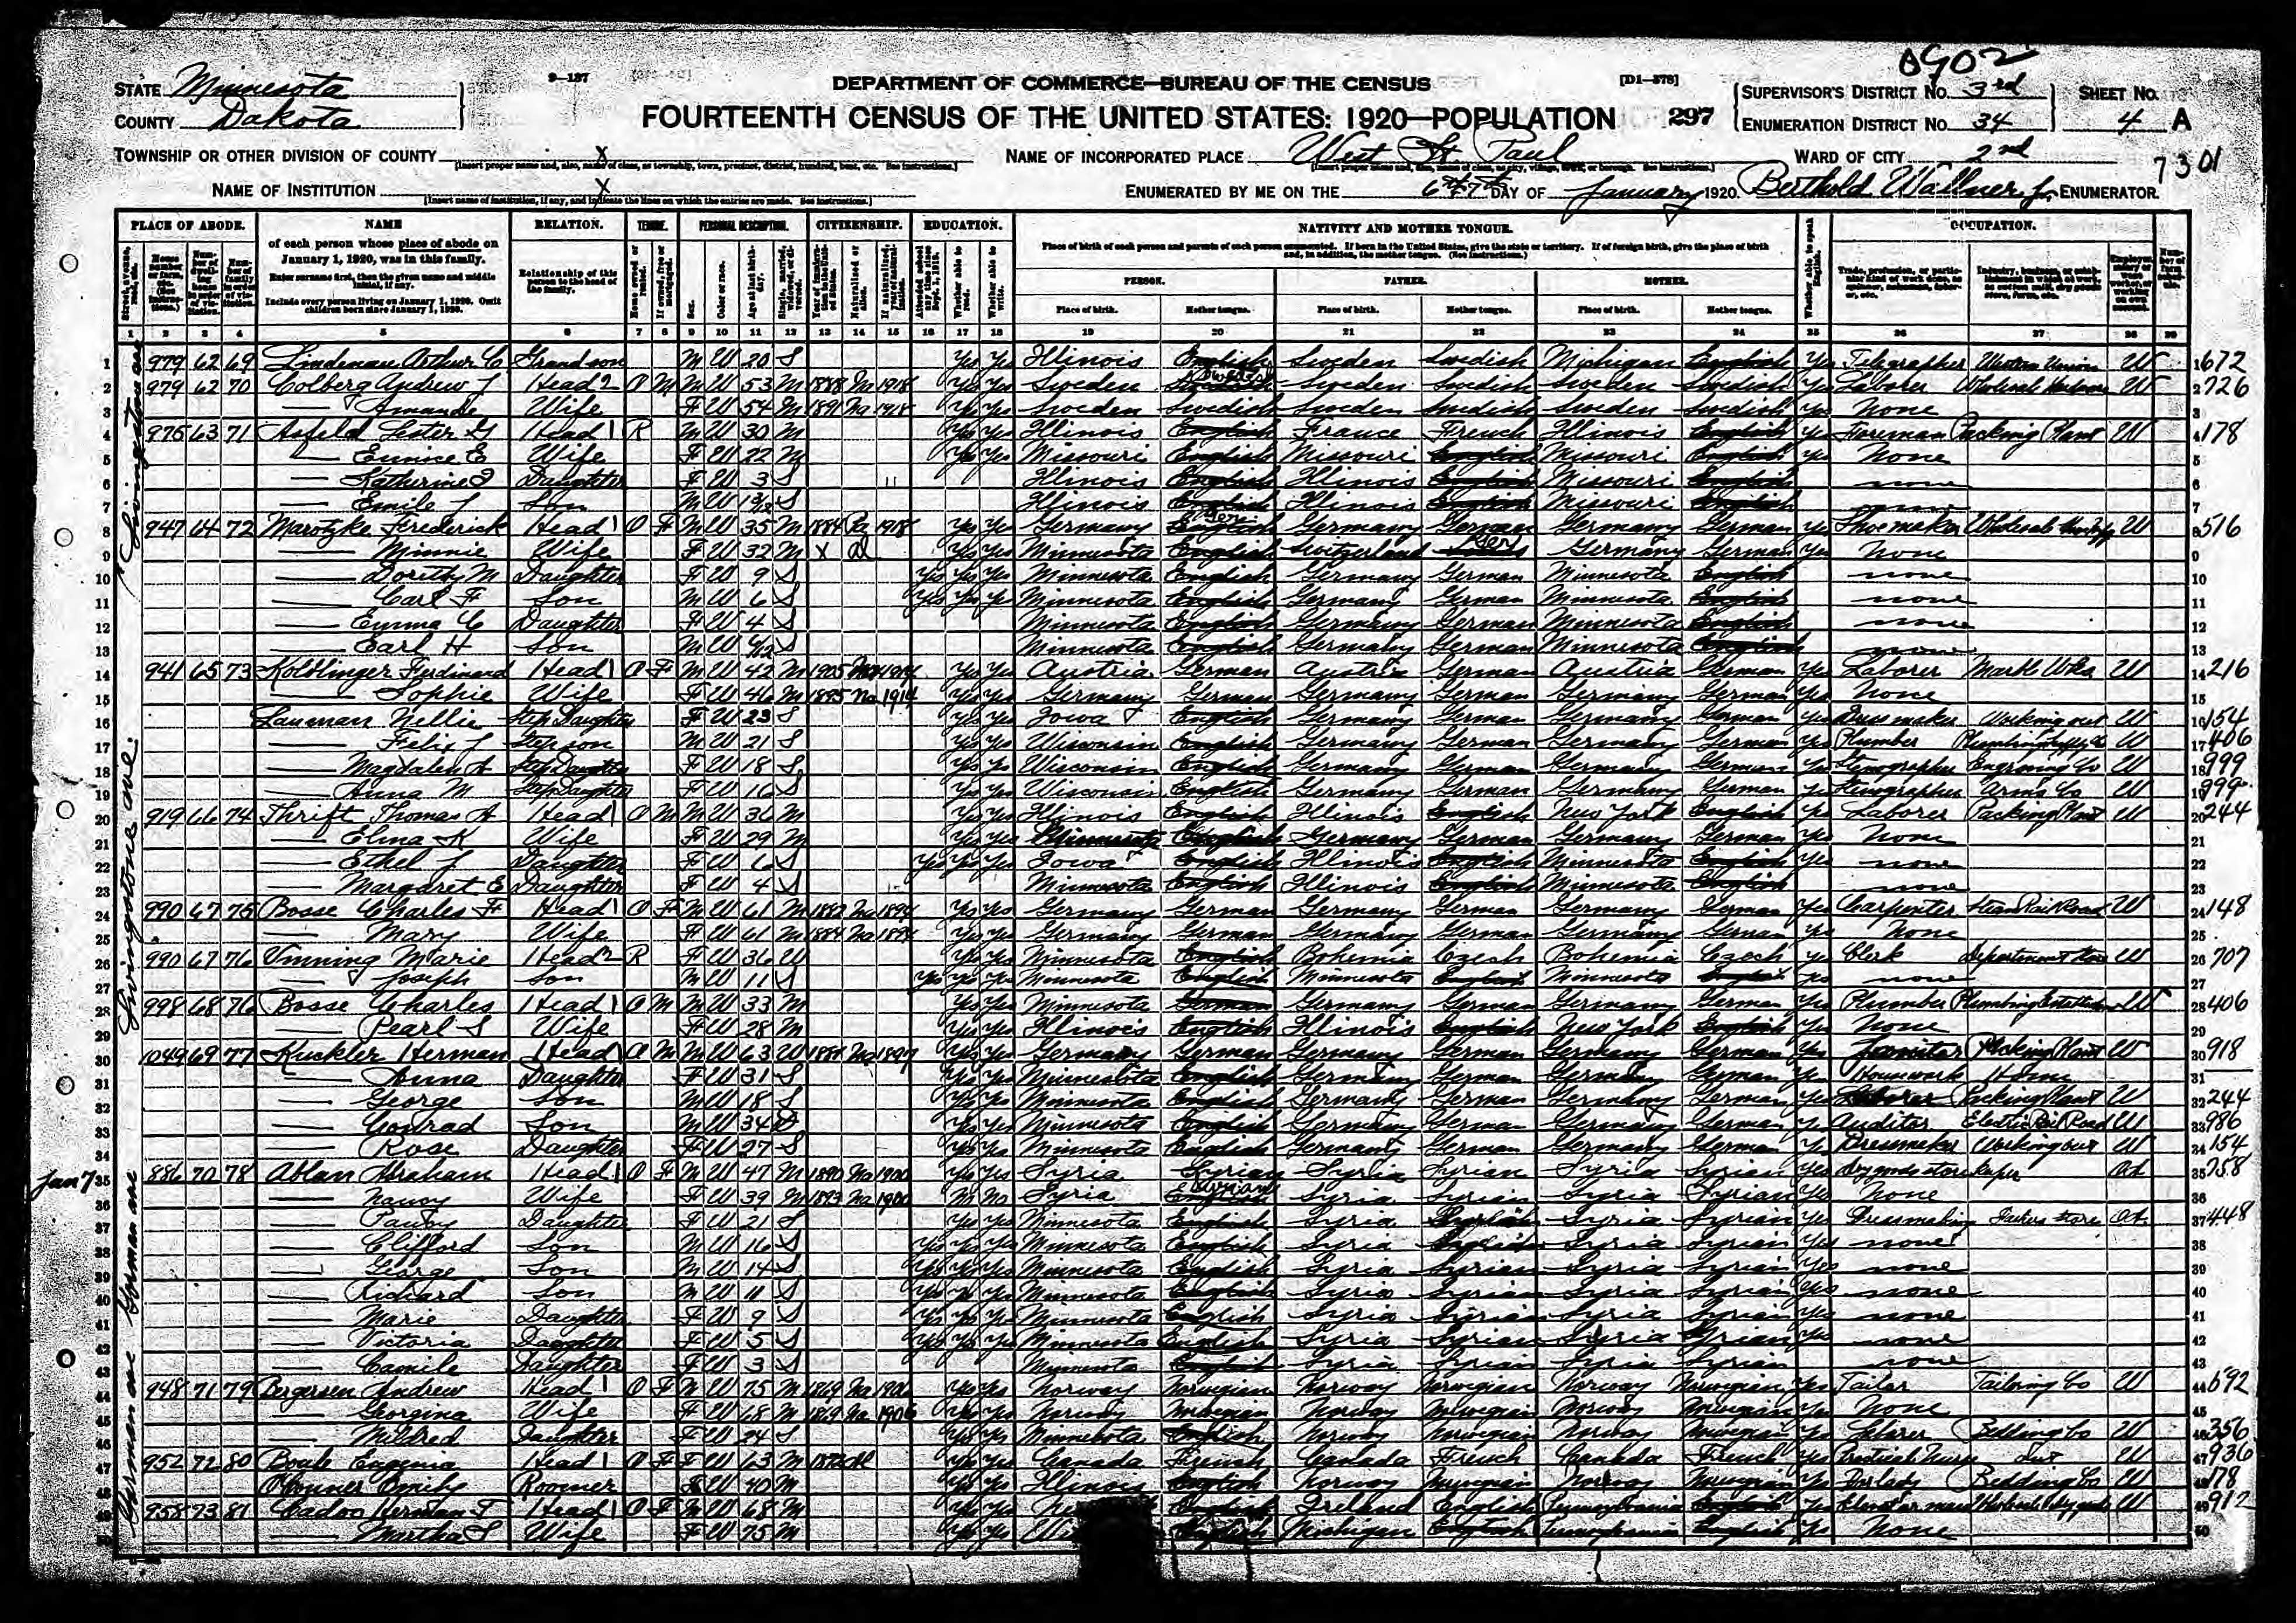 0902
STATE Minnesota
COUNTY Dakota
9-137
DEPARTMENT OF COMMERCE—BUREAU OF THE CENSUS
[D1-578]
FOURTEENTH CENSUS OF THE UNITED STATES: 1920—POPULATION 297
SUPERVISOR'S DISTRICT NO. 3rd
ENUMERATION DISTRICT NO. 34
SHEET NO. 4 A
TOWNSHIP OR OTHER DIVISION OF COUNTY X
NAME OF INCORPORATED PLACE West St Paul
WARD OF CITY 2nd
7301
NAME OF INSTITUTION X
ENUMERATED BY ME ON THE 6th 7th DAY OF January, 1920. Berthold Wallner Jr, ENUMERATOR
PLACE OF ABODE. NAME RELATION. TENURE. PERSONAL DESCRIPTION. CITIZENSHIP. EDUCATION. NATIVITY AND MOTHER TONGUE. OCCUPATION.
of each person whose place of abode on January 1, 1920, was in this family.
Enter surname first, then the given name and middle initial, if any.
Include every person living on January 1, 1920. Omit children born since January 1, 1920.
Relationship of this person to the head of the family.
Place of birth of each person and parents of each person enumerated. If born in the United States, give the state or territory. If of foreign birth, give the place of birth and, in addition, the mother tongue. (See instructions.)
PERSON. FATHER. MOTHER.
Place of birth. Mother tongue. Place of birth. Mother tongue. Place of birth. Mother tongue.
1 2 3 4 5 6 7 8 9 10 11 12 13 14 15 16 17 18 19 20 21 22 23 24 25 26 27 28 29
1 979 62 69 Lindeman Arthur C Grandson M W 20 S Yes Yes Illinois English Sweden Swedish Michigan English Yes Telegrapher Western Union W 672
2 979 62 70 Colberg Andrew J Head 2 O M M W 53 M 1888 Na 1918 Yes Yes Sweden Swedish Sweden Swedish Sweden Swedish Yes Laborer Wholesale Hardware W 726
3 — Amanda Wife F W 54 M 1891 Na 1918 Yes Yes Sweden Swedish Sweden Swedish Sweden Swedish Yes None
4 975 63 71 Asfeld Lester G Head 1 R M W 30 M Yes Yes Illinois English France French Illinois English Yes Foreman Packing Plant W 178
5 — Eunice E Wife F W 22 M Yes Yes Missouri English Missouri English Missouri English Yes None
6 — Katherine I Daughter F W 3 S Illinois English Illinois English Missouri English none
7 — Emile J Son M W S Illinois English Illinois English Missouri English none
8 947 64 72 Marotzke Frederick Head 1 O F M W 35 M 1884 Pa 1918 Yes Yes Germany Ger. Germany German Germany German Yes Shoemaker Wholesale W 516
9 — Minnie Wife F W 32 M X Al Yes Yes Minnesota English Switzerland Ger Germany German Yes None
10 — Dorothy M Daughter F W 9 S Yes Yes Yes Minnesota English Germany German Minnesota English none
11 — Carl F Son M W 6 S Yes Yes Ye Minnesota English Germany German Minnesota English none
12 — Emma C Daughter F W 4 S Minnesota English Germany German Minnesota English none
13 — Earl H Son M W 4/12 S Minnesota English Germany German Minnesota English none
14 941 65 73 Koldlinger Ferdinand Head 1 O F M W 42 M 1905 Na 1914 Yes Yes Austria German Austria German Austria German Yes Laborer Marble Wks W 216
15 — Sophie Wife F W 46 M 1885 Na 1914 Yes Yes Germany German Germany German Germany German Yes None
16 Lauman Nellie Step Daughter F W 23 S Yes Yes Iowa English Germany German Germany German Yes Dressmaker Working out W 154
17 — Felix J Stepson M W 21 S Yes Yes Wisconsin English Germany German Germany German Yes Plumber Plumbing Supply Co W 406
18 — Magdalen A Step Daughter F W 18 S Yes Yes Wisconsin English Germany German Germany German Yes Stenographer Engraving Co W 999
19 — Anna M Step Daughter F W 16 S Yes Yes Wisconsin English Germany German Germany German Yes Stenographer Arms Co W 999
20 919 66 74 Thrift Thomas A Head 1 O M M W 36 M Yes Yes Illinois English Illinois English New York English Yes Laborer Packing Plant W 244
21 — Elma K Wife F W 29 M Yes Yes Minnesota English Germany German Germany German Yes None
22 — Ethel J Daughter F W 6 S Yes Yes Yes Iowa English Illinois English Minnesota English Yes none
23 — Margaret E Daughter F W 4 S Minnesota English Illinois English Minnesota English none
24 990 67 75 Bosse Charles F Head 1 O F M W 61 M 1882 Na 1894 Yes Yes Germany German Germany German Germany German Yes Carpenter Steam Rail Road W 148
25 — Mary Wife F W 61 M 1884 Na 1894 Yes Yes Germany German Germany German Germany German Yes None
26 990 67 76 Vinning Marie Head 2 R F W 36 W Yes Yes Minnesota English Bohemia Czech Bohemia Czech Yes Clerk Department Store W 707
27 — Joseph Son M W 11 S Yes Yes Yes Minnesota English Minnesota English Minnesota English Yes none
28 998 68 76 Bosse Charles Head 1 O M M W 33 M Yes Yes Minnesota German Germany German Germany German Yes Plumber Plumbing Establish W 406
29 — Pearl S Wife F W 28 M Yes Yes Illinois English Illinois English New York English Yes None
30 1049 69 77 Kuckler Herman Head O M M W 63 W Na 1897 Yes Yes Germany German Germany German Germany German Yes Janitor Packing Plant W 918
31 — Anna Daughter F W 31 S Yes Yes Minnesota English Germany German Germany German Yes Housework Home
32 — George Son M W 18 S Yes Yes Minnesota English Germany German Germany German Yes Laborer Packing Plant W 244
33 — Conrad Son M W 34 Yes Yes Minnesota English Germany German Germany German Yes Auditor Electric Rail Road W 986
34 — Rose Daughter F W 27 S Yes Yes Minnesota English Germany German Germany German Yes Dressmaker Working out W 154
Jan 7 35 886 70 78 Ablan Abraham Head 1 O F M W 47 M 1890 Na 1900 Yes Yes Syria Syrian Syria Syrian Syria Syrian Yes dry goods store keeper OA 758
36 — Nancy Wife F W 39 M 1893 Na 1900 No No Syria Syrian Syria Syrian Syria Syrian Yes None
37 — Daughter F W 21 S Yes Yes Minnesota English Syria Syrian Syria Syrian Yes Dressmaking Fathers store OA 448
38 — Clifford Son M W 16 S Yes Yes Yes Minnesota English Syria Syria Syrian Yes none
39 — George Son M W 14 S Yes Yes Yes Minnesota English Syria Syrian Syria Syrian Yes none
40 — Richard Son M W 11 S Yes Yes Yes Minnesota English Syria Syrian Syria Syrian Yes none
41 — Marie Daughter F W 9 S Yes Yes Yes Minnesota English Syria Syrian Syria Syrian Yes none
42 — Victoria Daughter F W 5 S Yes Yes Yes Minnesota English Syria Syrian Syria Syrian Yes none
43 — Camile Daughter F W 3 S Minnesota English Syria Syrian Syria Syrian none
44 948 71 79 Bergersen Andrew Head 1 O F M W 75 M 1869 Na 1906 Yes Yes Norway Norwegian Norway Norwegian Norway Norwegian Yes Tailor Tailoring Co W 692
45 — Georgina Wife F W 68 M 1869 Na 1906 Yes Yes Norway Norwegian Norway Norwegian Norway Norwegian Yes None
46 — Mildred Daughter F W 24 S Yes Yes Minnesota English Norway Norwegian Norway Norwegian Yes Bedding Co W 356
47 952 72 80 Eugenia Head 1 O F F W 63 M Al Yes Yes Canada French Canada French Canada French Yes Practical Nurse Out W 936
48 O'Conner Emily Roomer F W 40 M Yes Yes Illinois English Norway Norwegian Norway Norwegian Yes Forlady Bedding Co W 178
49 958 73 81 Cadoo Herman F Head 1 O F M W 68 M Yes Yes English Ireland English Pennsylvania English Yes Elevator man Wholesale dry goods W 912
50 — Martha S Wife F W 75 M Yes Yes English Michigan English Pennsylvania English Yes None
Livingstone ave
Livingstone ave.
Gorman ave
Gorman ave